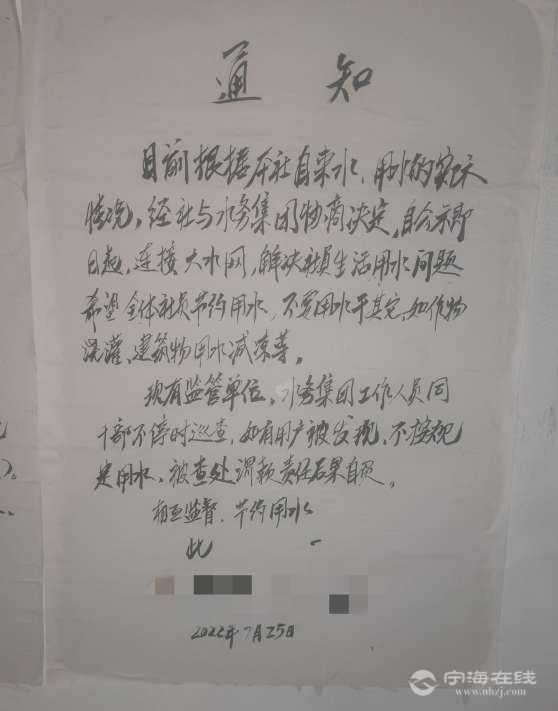 通 知
目前根据本社自来水、用水的实际
情况，经社与水务集团协商决定，自公示即
日起，连接大水网，解决社员生活用水问题
希望全体社员节约用水，不要用水于其它，如作物
浇灌、建筑物用水减冻等。
现有监管单位，水务集团工作人员同
干部不停时巡查，如有用户被发现，不按规
定用水、被查处罚款责任后果自负。
相互监督、节约用水
此
2022年7月25日
宁海在线
www.nhzj.com